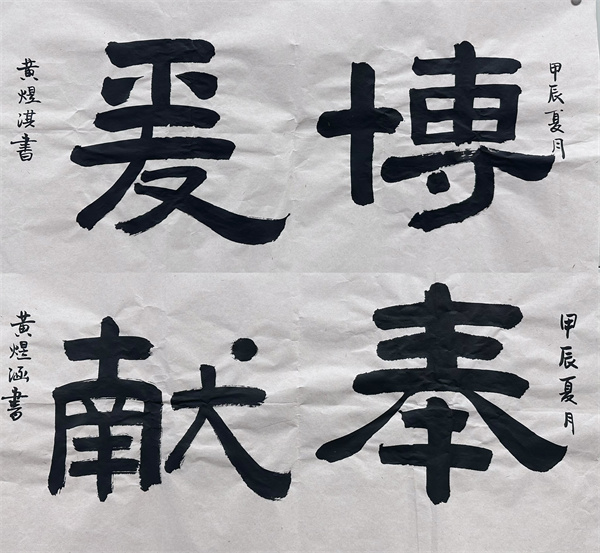 甲辰夏月
博爱
黄煜淇書
甲辰夏月
奉献
黄煜涵書